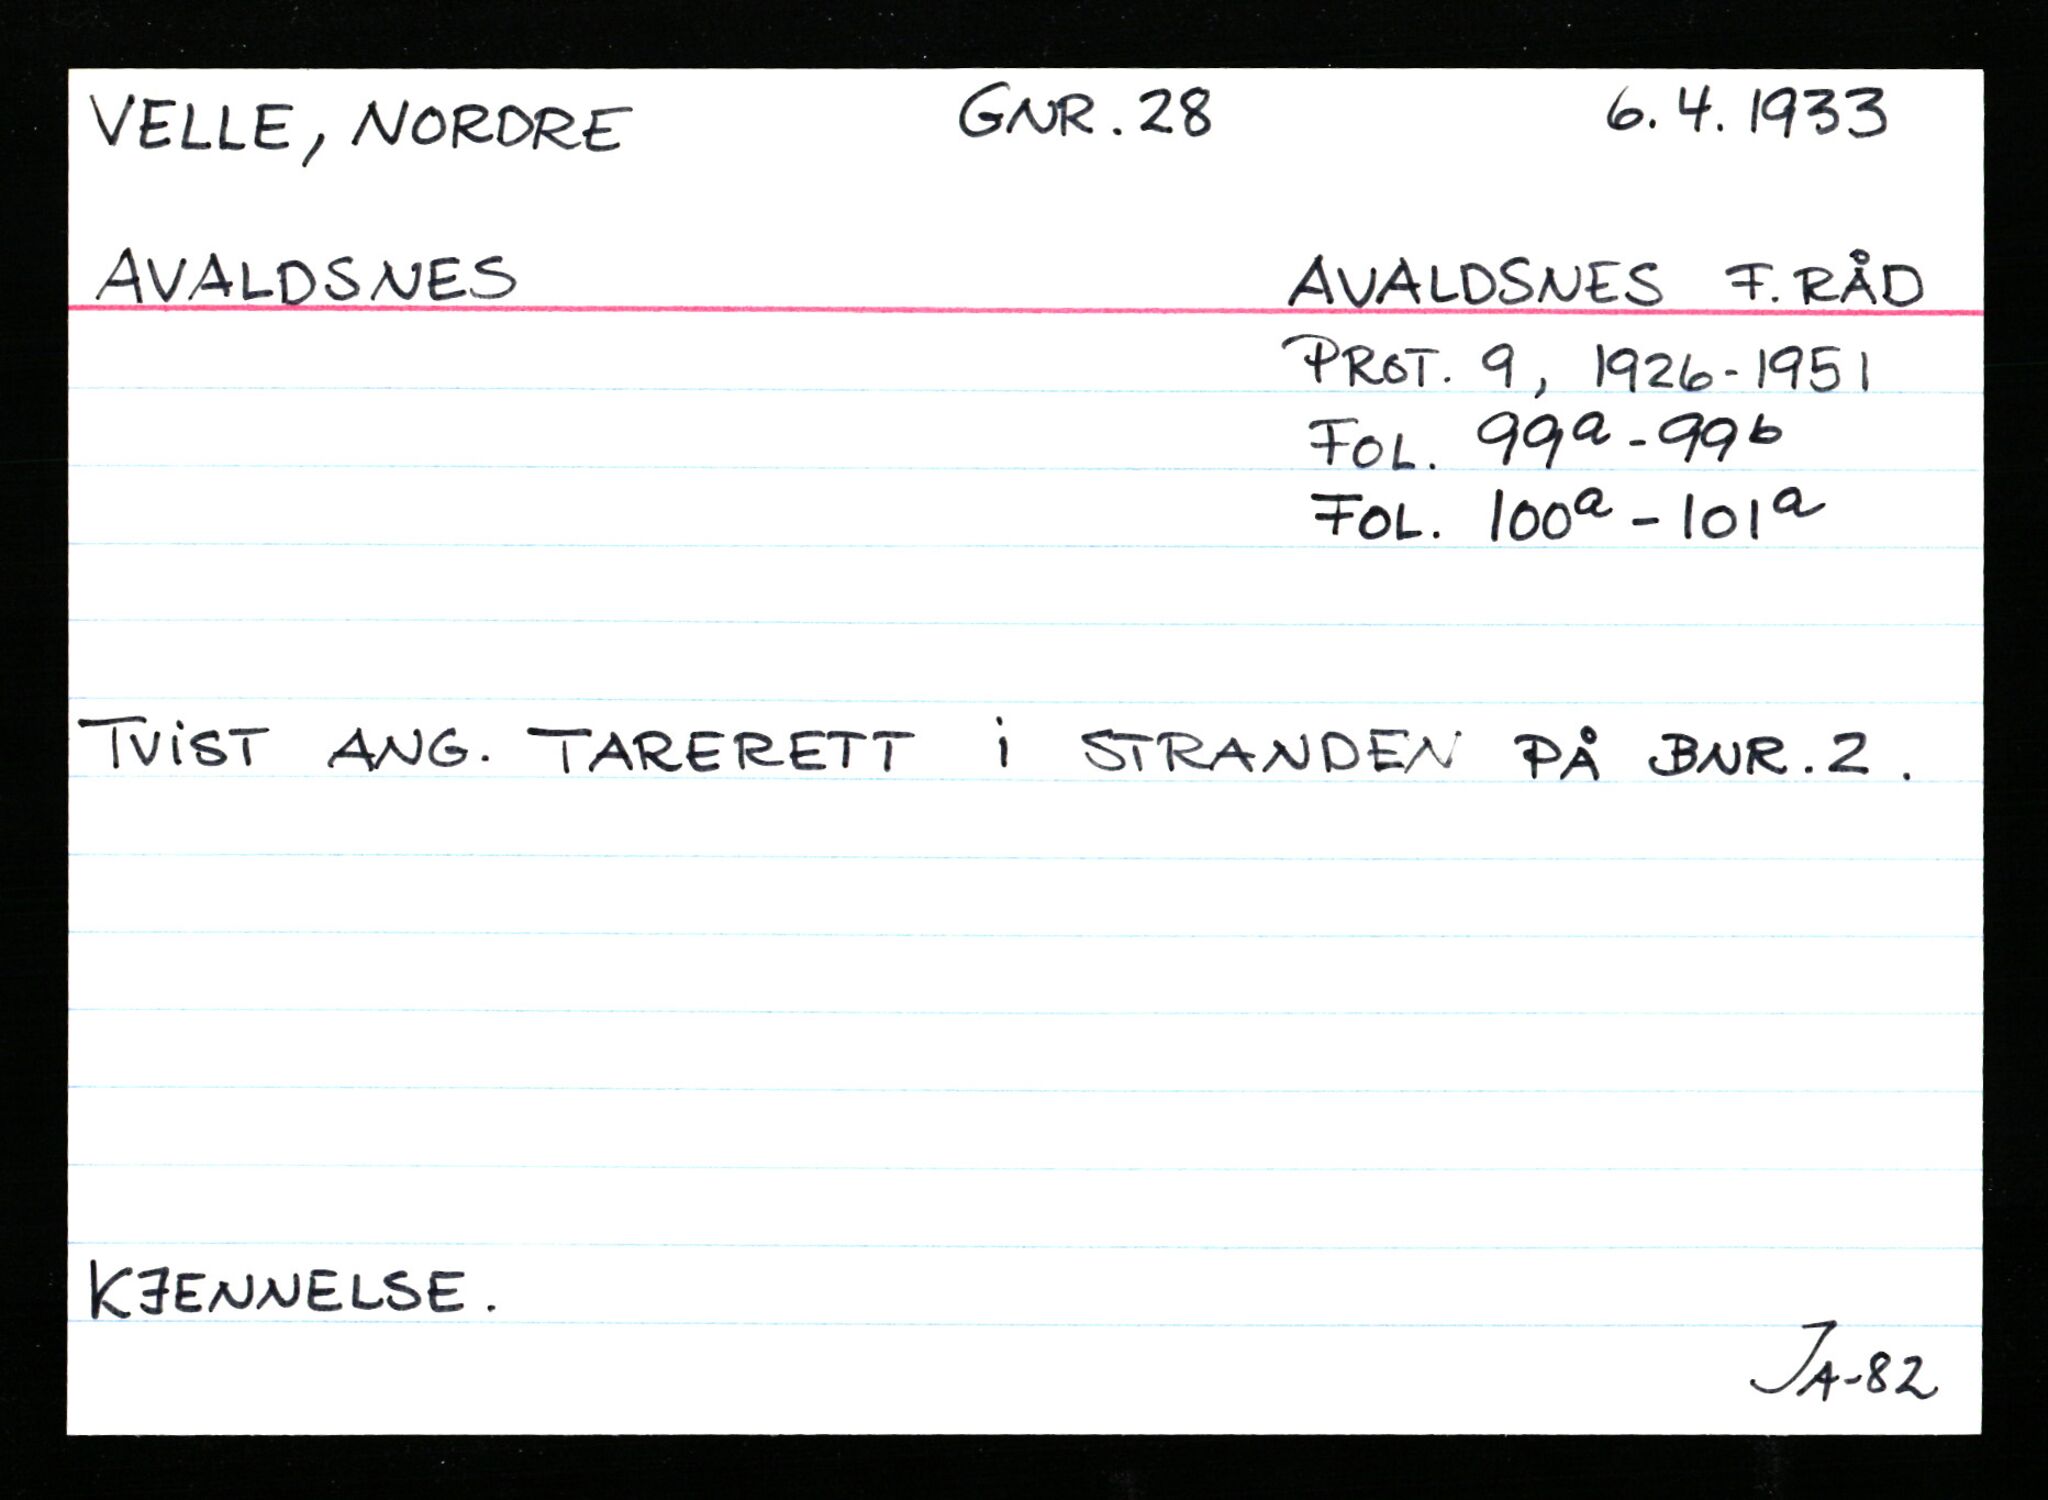 VELLE, NORDRE GNR. 28 6.4.1933
AVALDSNES AVALDSNES F. RÅD
PROT. 9, 1926-1951
FOL. 99a - 99b
FOL. 100a - 101a
TViST ANG. TARERETT i STRANDEN PÅ BNR. 2.
KJENNELSE.
JA-82